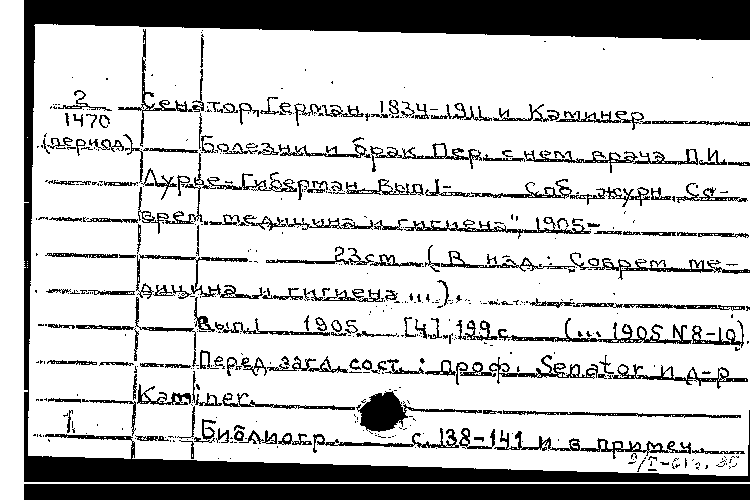 2
1470
(период)
Сенатор, Герман, 1834-1911 и Каминер
Болезни и брак Пер. с нем. врача П.И.
Лурье-Гиберман. Вып.1- Спб., журн. Со-
врем. медицина и гигиена", 1905-
23cm (В изд.: Соврем. ме-
дицина и гигиена ...).
Вып.1 1905. [4], 199 с. (... 1905 N8-10).
Перед загл. сост.: проф. Senator и д-р
Kaminer.
1
Библиогр. с. 138-141 и в примеч.